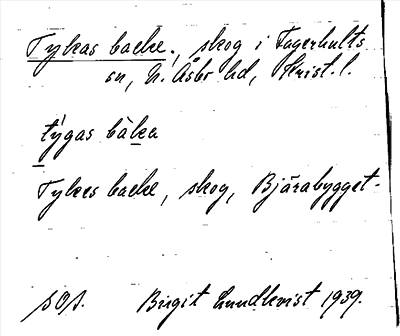 Tykas backe, skog i Fagerhults
sn, N. Åsbo hd, Krist. l.
týgas bàka
Tykes backe, skog, Bjärabygget.
sos. Birgit Lundkvist 1939.